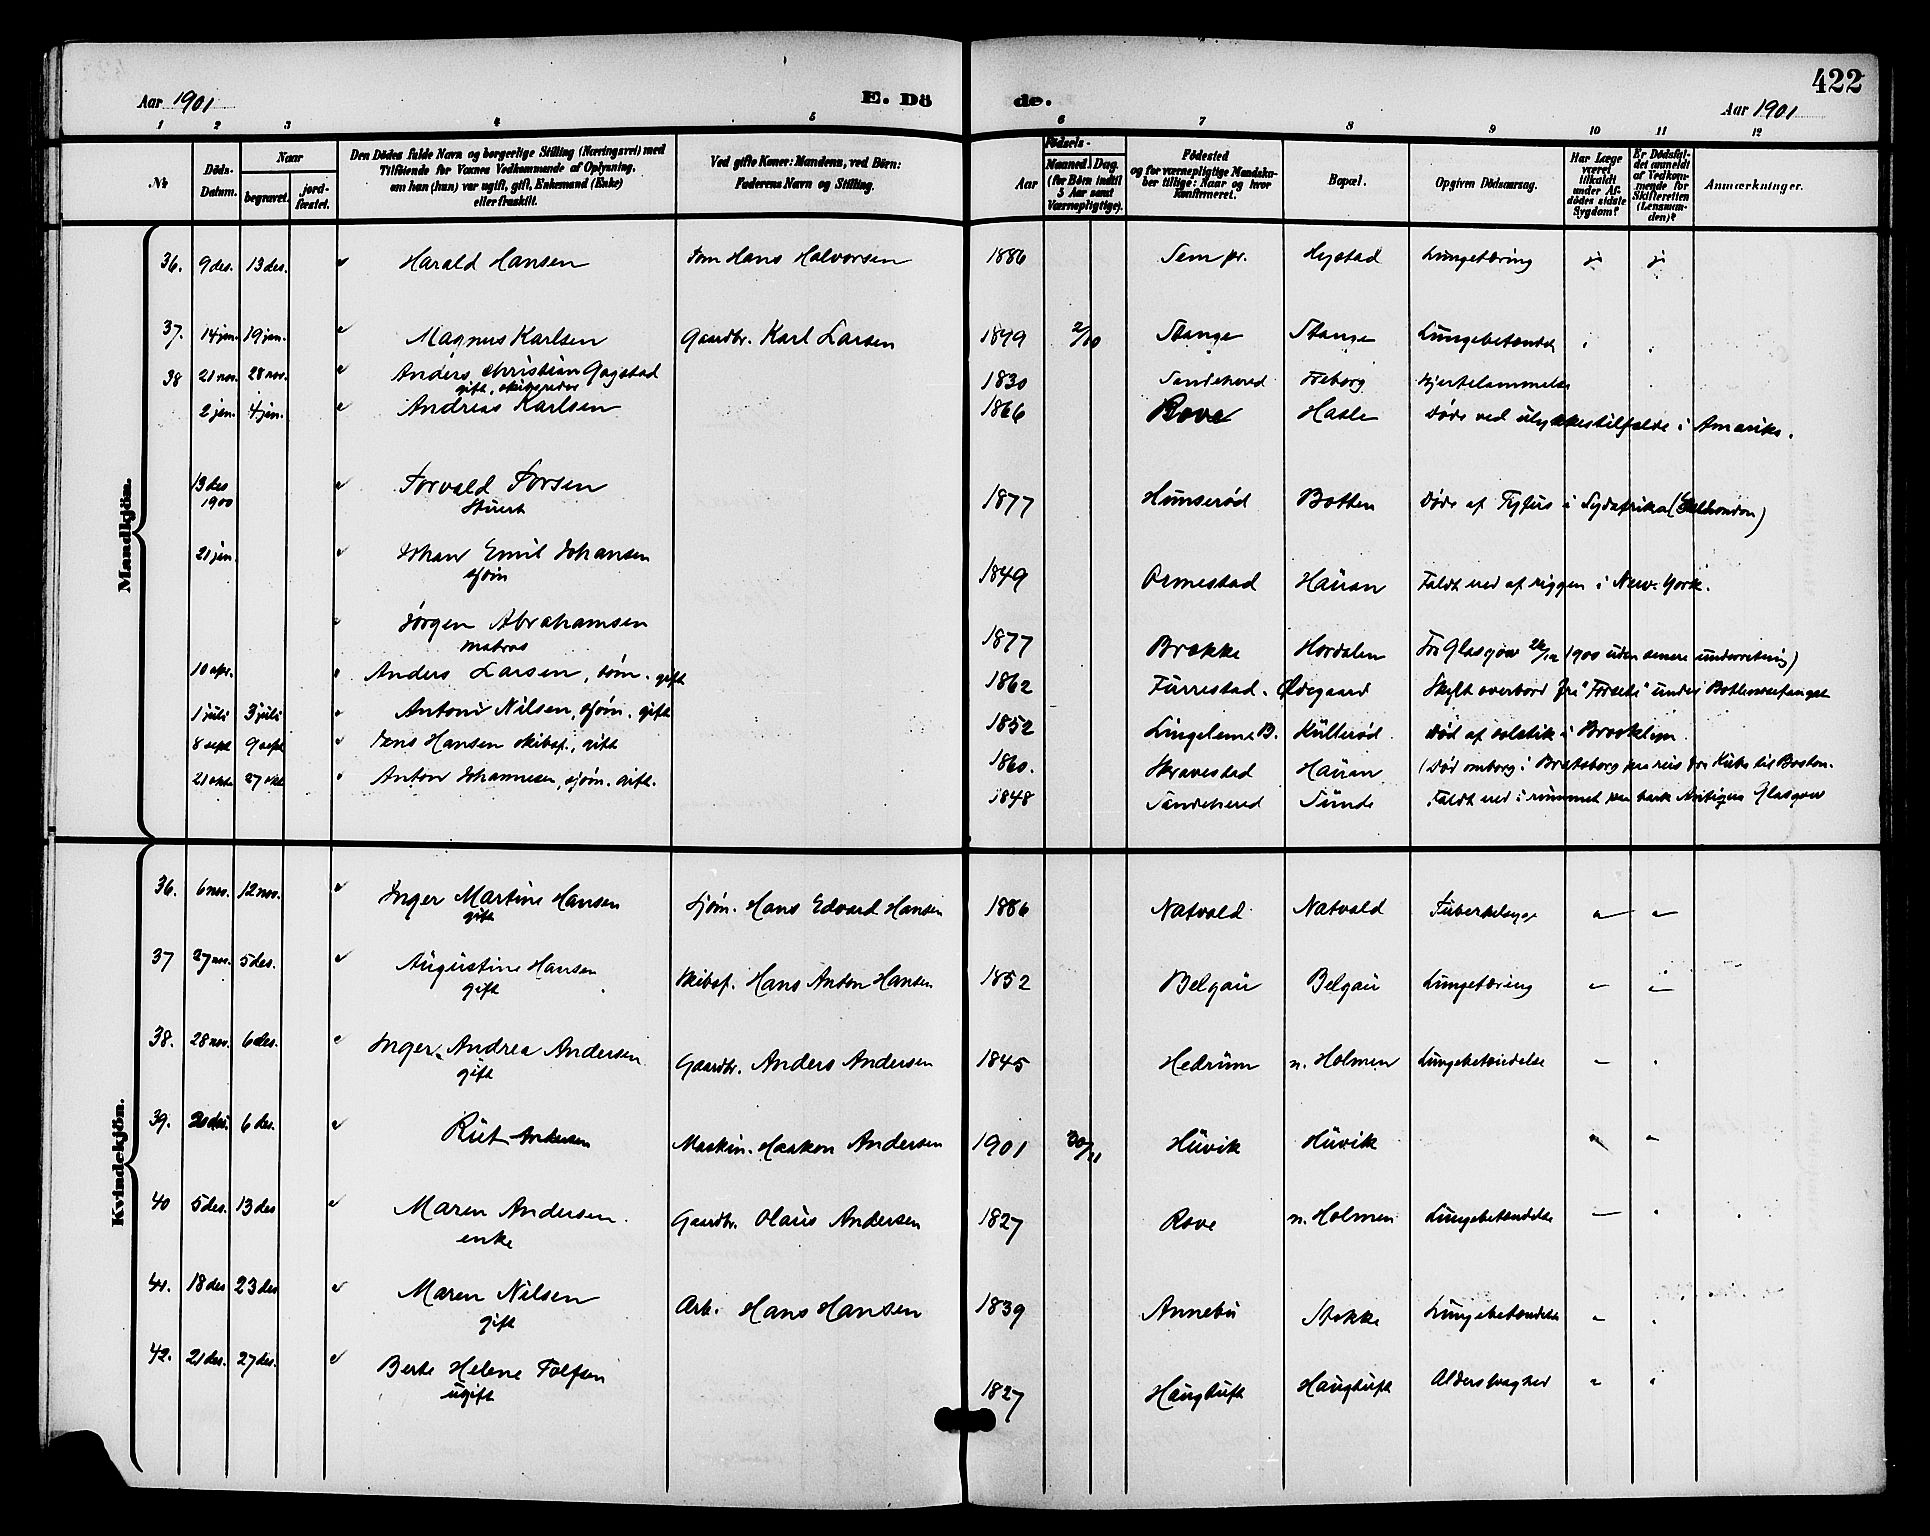 422
Aar 1901 E. Dö de. Aar 1901
1 2 3 4 5 6 7 8 9 10 11 12
№ Döds-Datum. Naar begravet. jord-fæstet. Den Dödes fulde Navn og borgerlige Stilling (Næringsvei) med Tilföiende for Voxnes Vedkommende af Oplysning, om han (hun) var ugift, gift, Enkemand (Enke) eller fraskilt. Ved gifte Koner: Mandens, ved Börn: Faderens Navn og Stilling. Födsels- Aar Maaned. Dag. (for Börn indtil 5 Aar samt Værnepligtige). Födested og for værnepligtige Mandskaber tillige: Naar og hvor Konfirmeret. Bopæl. Opgiven Dödsaarsag. Har Læge været tilkaldt under Afdödes sidste Sygdom? Er Dödsfaldet anmeldt af Vedkommende for Skifteretten (Lensmanden)? Anmærkninger.
Mandkjön.
36. 9 des. 13 des. Harald Hansen Tøm Hans Halvorsen 1886 Sem pr. Hystad Lungetæring j j
37. 14 jan. 19 jan. Magnus Karlsen Gaardbr. Karl Larsen 1899 2/10 Stange Stange Lungebetændel
38 21 nov. 28 nov. Anders Christian Gogstad 1830 Sandeherred Freborg Hjertelammelse
gift, skibsreder
2 jan. 4 jan. Andreas Karlsen 1866 Rove Hasle Døde ved ulykkestilfælde i Amerika.
13 des 1900 Torvald Torsen 1877 Hunserød Botten Døde af Tyfus i Sydafrika (Østlondon)
Stuert
21 jan. Johan Emil Johansen 1849 Ormestad Hauan Faldt ned af riggen i New-York.
sjøm
Jørgen Abrahamsen 1877 Brække Hordalen Fra Glasgow 26/12 1900 uden senere underretning)
matros
10 apr. Anders Larsen, tøm. gift 1862 Furrestad. Ødegaard Skylt overbord fra "Forseti" under Bottlenosefangst
1 juli 3 juli Anton Nilsen, sjøm. gift 1852 Lingelem B. Kullerød Død af solstik i Brooklyn.
8 sept 9 sept Jens Hansen skibsf., gift 1860. Skravestad Hauan (Død ombord i Bratsborg paa reis fra Kuba til Boston.
21 okto 27 okt Anton Johannesen, sjøm. gift. 1848 Sandeherred Sunde Faldt ned i rummet paa bark Antigua Glasgow
Kvindekjön.
36. 6 nov. 12 nov. Inger Martine Hansen Sjøm. Hans Edvard Hansen 1886 Natvald Natvald Tuberkulose
gift
37 27 nov. 5 des. Augustine Hansen Skibsf. Hans Anton Hansen 1852 Belgau Belgau Lungetæring
gift
38. 28 nov. 6 des. Inger Andrea Andersen Gaardbr. Anders Andersen 1845 Hedrum n. Holmen Lungebetændelse
gift
39. 6 des. Rut Andersen Maskin. Haakon Andersen 1901 30/11 Huvik Huvik
40 5 des. 13 des Maren Andersen Gaardbr. Olaus Andersen 1827 Rove n. Holmen Lungebetændelse
enke
41. 18 des 23 des Maren Nilsen Arb. Hans Hansen 1839 Annebu Stokke Lungebetændelse
gift
42. 21 des. 27 des. Berte Helene Tolfsen 1827 Haugtuft Haugtuft Alderssvaghed
ugift